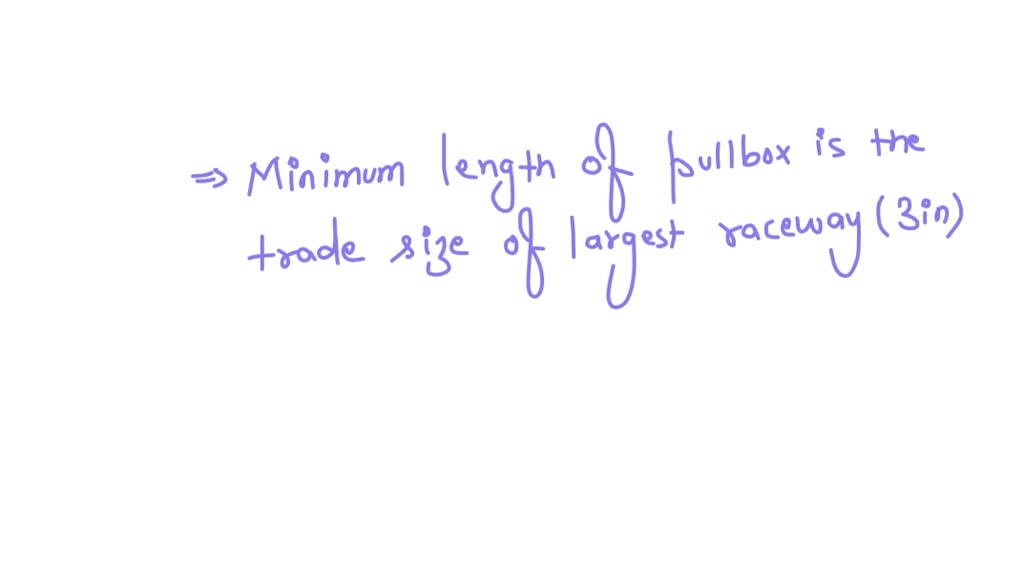 ⇒ Minimum length of pullbox is the
trade size of largest raceway (3in)